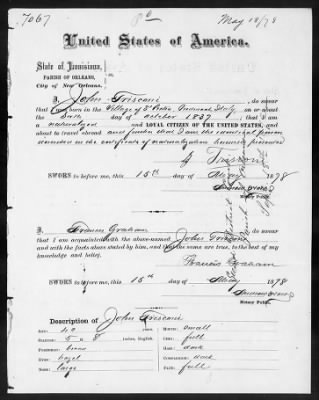 7067
May 18/78
United States of America.
State of Louisiana,
PARISH OF ORLEANS,
City of New Orleans.
I, John Trisconi, do swear
that I was born in the Village of St Pietro Piedmont, Italy on or about
the day of October 1837; that I am a
naturalized and LOYAL CITIZEN OF THE UNITED STATES, and
about to travel abroad and further that I am the identical person
described in the certificate of naturalization herewith presented
G Trisconi
SWORN to before me, this 15th day of May 1878
Notary Public.
I, Francis Graham, do swear
that I am acquainted with the above-named John Trisconi
and with the facts above stated by him, and that the same are true, to the best of my
knowledge and belief.
Francis Graham
SWORN to before me, this 15th day of May 1878
Notary Public.
Description of John Trisconi
Age: 40
Stature: 5 " 8 Inches, English.
Forehead:
Eyes: hazel
Nose: large
Mouth: small
Chin: full
Hair: dark
Complexion: dark
Face: full